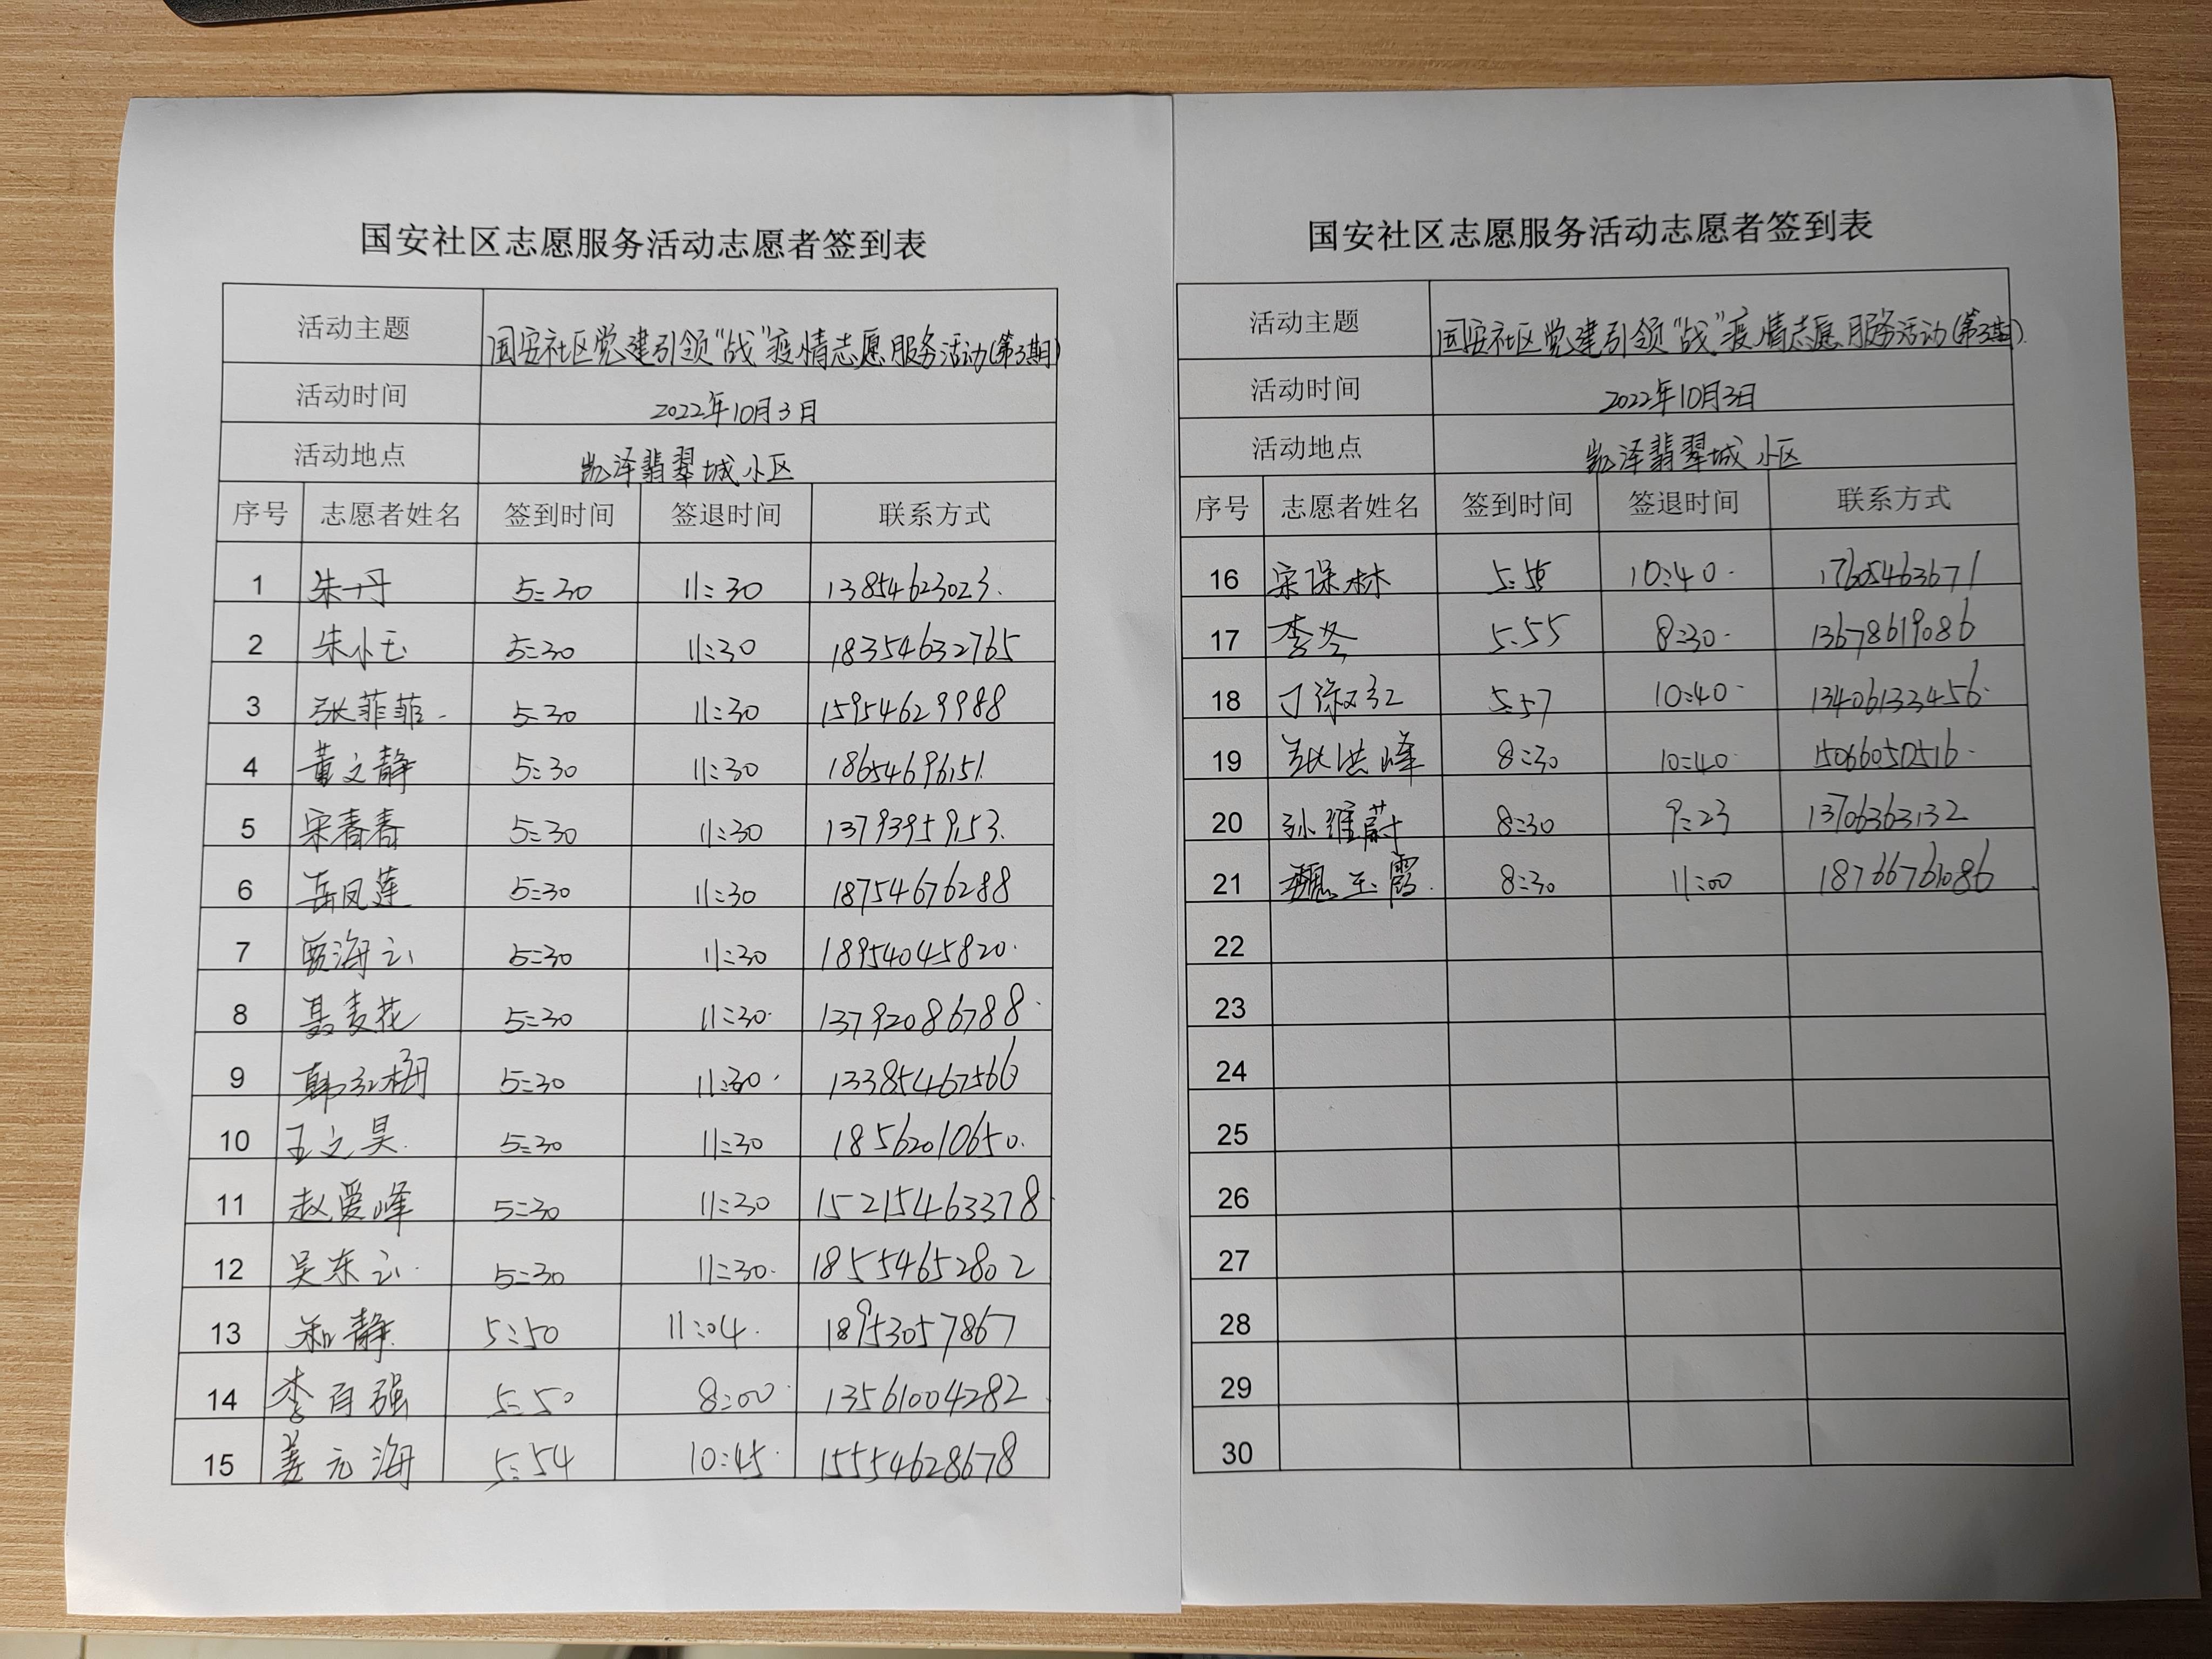 国安社区志愿服务活动志愿者签到表
活动主题 国安社区党建引领“战”疫情志愿服务活动(第3期)
活动时间 2022年10月3日
活动地点 凯泽翡翠城小区
序号 志愿者姓名 签到时间 签退时间 联系方式
1 朱丹 5:30 11:30 13854623023.
2 朱小玉 5:30 11:30 18354632765
3 张菲菲. 5:30 11:30 15954629988
4 董文静 5:30 11:30
5 宋春春 5:30 11:30
6 岳凤莲 5:30 11:30 18754676288
7 贾海云 5:30 11:30 18954045820.
8 聂麦花 5:30 11:30. 13792086788.
9 韩红梅 5:30 11:30. 13385467566
10 王文昊. 5:30 11:30 18562010650.
11 赵爱峰 5:30 11:30 15215463378
12 吴东云. 5:30 11:30. 18554652802
13 和静. 5:50 11:04. 18953057867
14 李百强 5:50 8:00. 13561004282
15 姜元海 5:54 10:45. 15554628678
国安社区志愿服务活动志愿者签到表
活动主题 国安社区党建引领“战”疫情志愿服务活动(第3期).
活动时间 2022年10月3日
活动地点 凯泽翡翠城小区
序号 志愿者姓名 签到时间 签退时间 联系方式
16 宋保林 10:40. 17605463671
17 李冬 5:55 8:30. 13678619086
18 5:57 10:40. 13406133456.
19 张洪峰 8:30 10:40. 15066050516.
20 孙维蔚 8:30 9:23 13706363132
21 魏玉霞. 8:30 11:00 18766761086
22
23
24
25
26
27
28
29
30